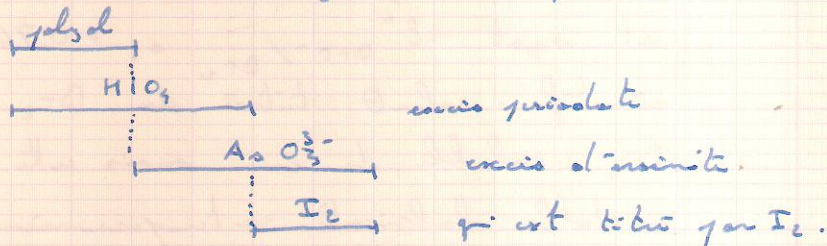 polyol
HIO₄ excès périodate
AsO₃³⁻ excès d'arsénite.
I₂ qui est titré par I₂.